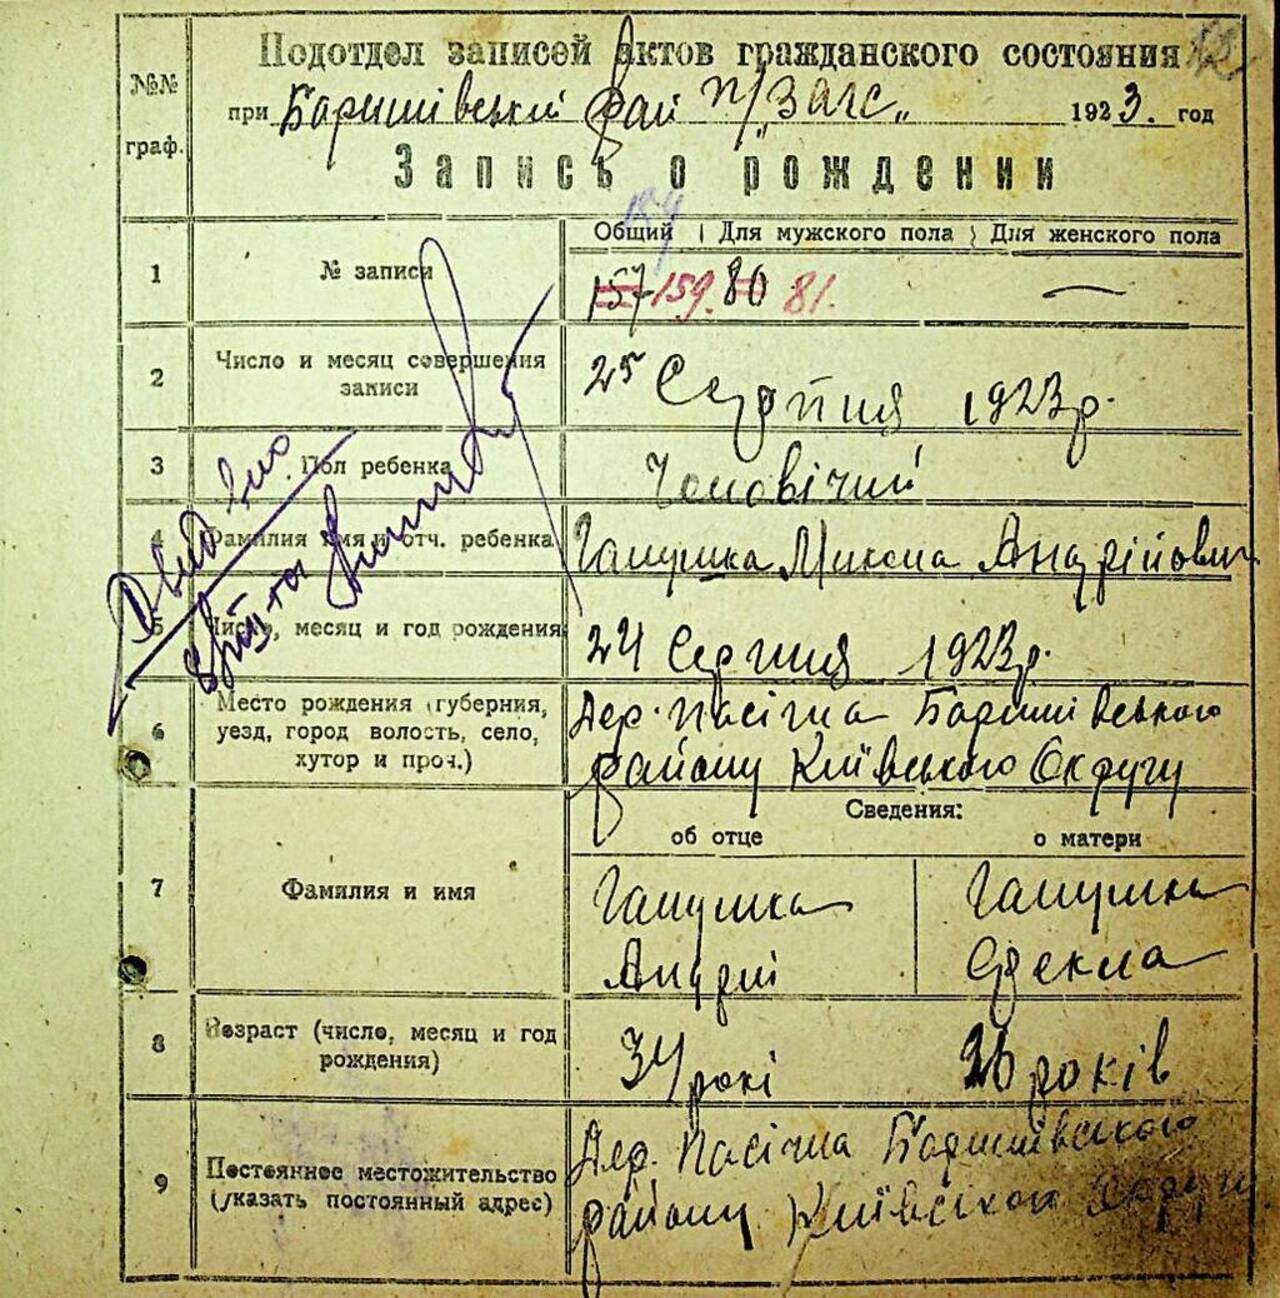 Подотдел записей актов гражданского состояния
№№ граф.
при Баришівській рай п/ "ЗАГС" 1923. год
Запись о рождении
159
Общий Для мужского пола Для женского пола
1 № записи 157 159. 80 81. —
2 Число и месяц совершения
записи
25 Серпня 1923р.
3 Пол ребенка Чоловічий
4 Фамилия имя и отч. ребенка Галушка Микола Андрійович
5 Число, месяц и год рождения 24 Серпня 1923р.
6 Место рождения (губерния,
уезд, город волость, село,
хутор и проч.)
Дер. Пасічна Баришівського
району Київського Округу
Сведения:
об отце о матери
7 Фамилия и имя
Галушка Галушка
Андрій Фекла
8 Возраст (число, месяц и год
рождения)
34 рокі 26 років
9 Постоянное местожительство
(указать постоянный адрес)
Дер. Пасічна Баришівського
району Київського Округу